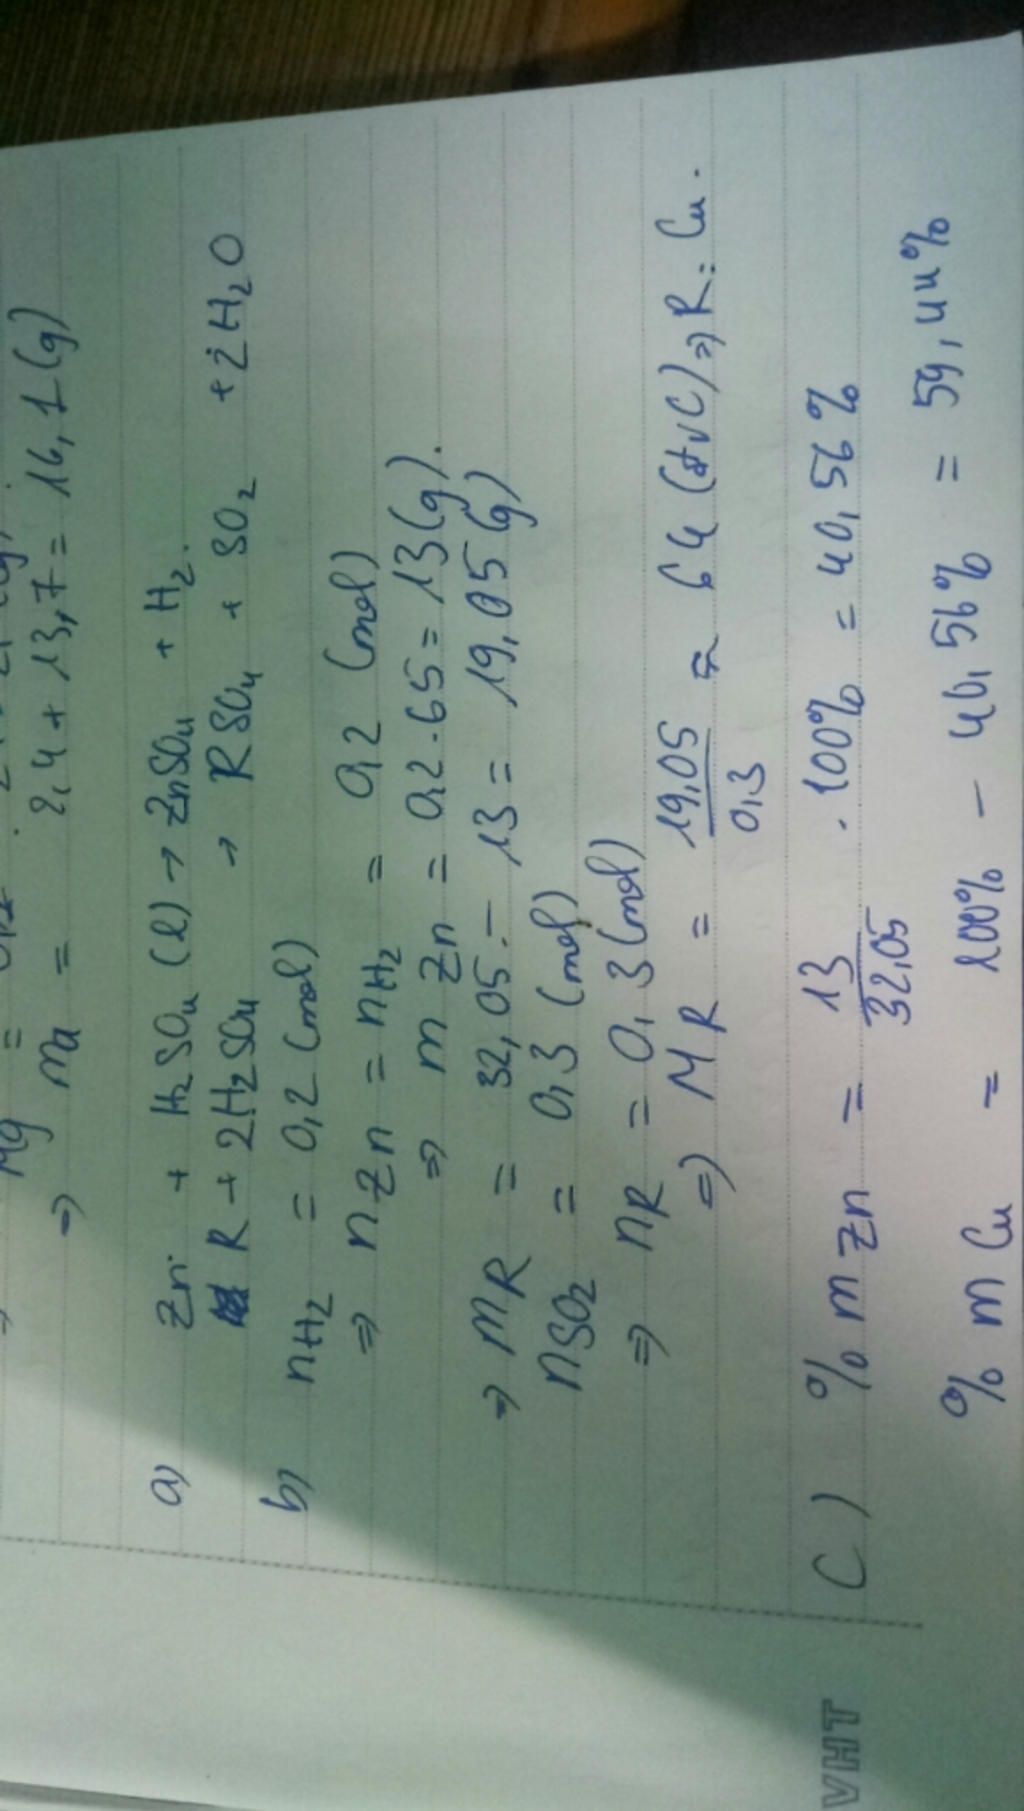 => ma = 2,4 + 13,7 = 16,1 (g)
a) Zn + H2SO4 (l) → ZnSO4 + H2.
R + 2H2SO4 → RSO4 + SO2 + 2H2O
b) nH2 = 0,2 (mol)
=> nZn = nH2 = 0,2 (mol)
=> m Zn = 0,2 . 65 = 13 (g).
=> mR = 32,05 - 13 = 19,05 (g)
nSO2 = 0,3 (mol)
=> nR = 0,3 (mol)
=> MR = 19,05 / 0,3 ≈ 64 (đvC) => R: Cu.
C) % m Zn = 13 / 32,05 . 100% = 40,56%
% m Cu = 100% - 40,56% = 59,44%
VHT